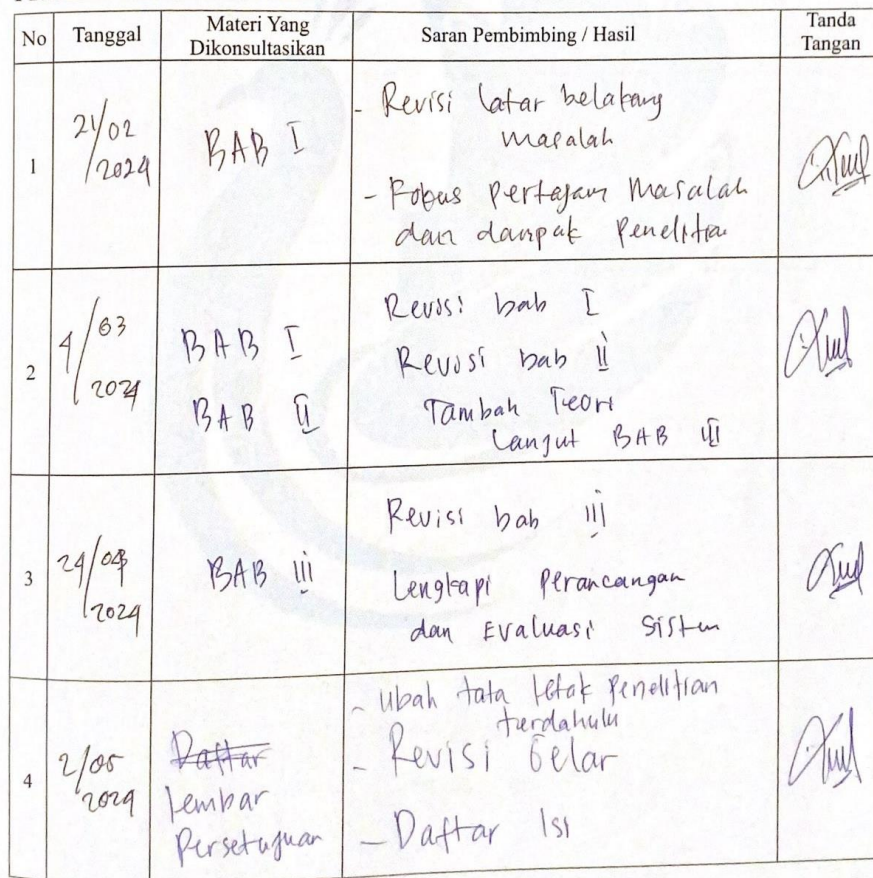 No Tanggal Materi Yang Dikonsultasikan Saran Pembimbing / Hasil Tanda Tangan
1
21/02/2024
BAB I
- Revisi latar belakang
masalah
- Fokus pertajam masalah
dan dampak penelitian
2
4/03/2024
BAB I
BAB II
Revisi bab I
Revisi bab II
Tambah Teori
Lanjut BAB III
3
24/04/2024
BAB III
Revisi bab III
Lengkapi Perancangan
dan Evaluasi Sistem
4
2/05/2024
Daftar
lembar
Persetujuan
- Ubah tata letak Penelitian
terdahulu
- Revisi Gelar
- Daftar Isi